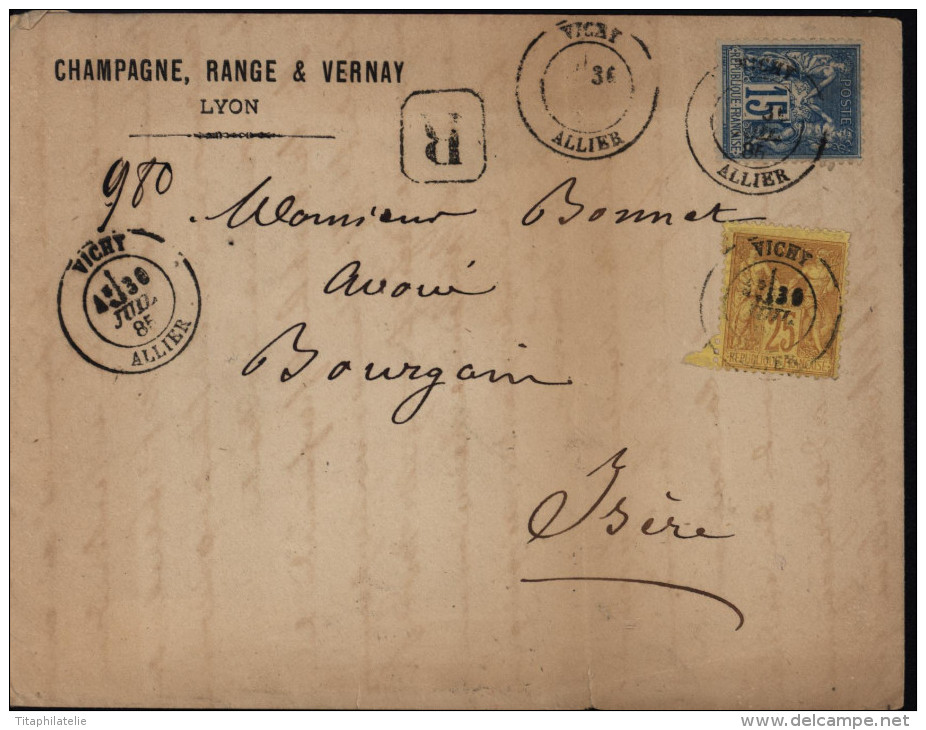 CHAMPAGNE, RANGE & VERNAY
LYON
980
R
VICHY
30
ALLIER
POSTES
15
REPUBLIQUE FRANÇAISE
VICHY
85
ALLIER
Monsieur Bonnet
Avoué
Bourgoin
Isère
VICHY
30
JUIL
85
ALLIER
VICHY
30
25
REPUBLIQUE FRANÇAISE
Titaphilatelie
www.delcampe.net